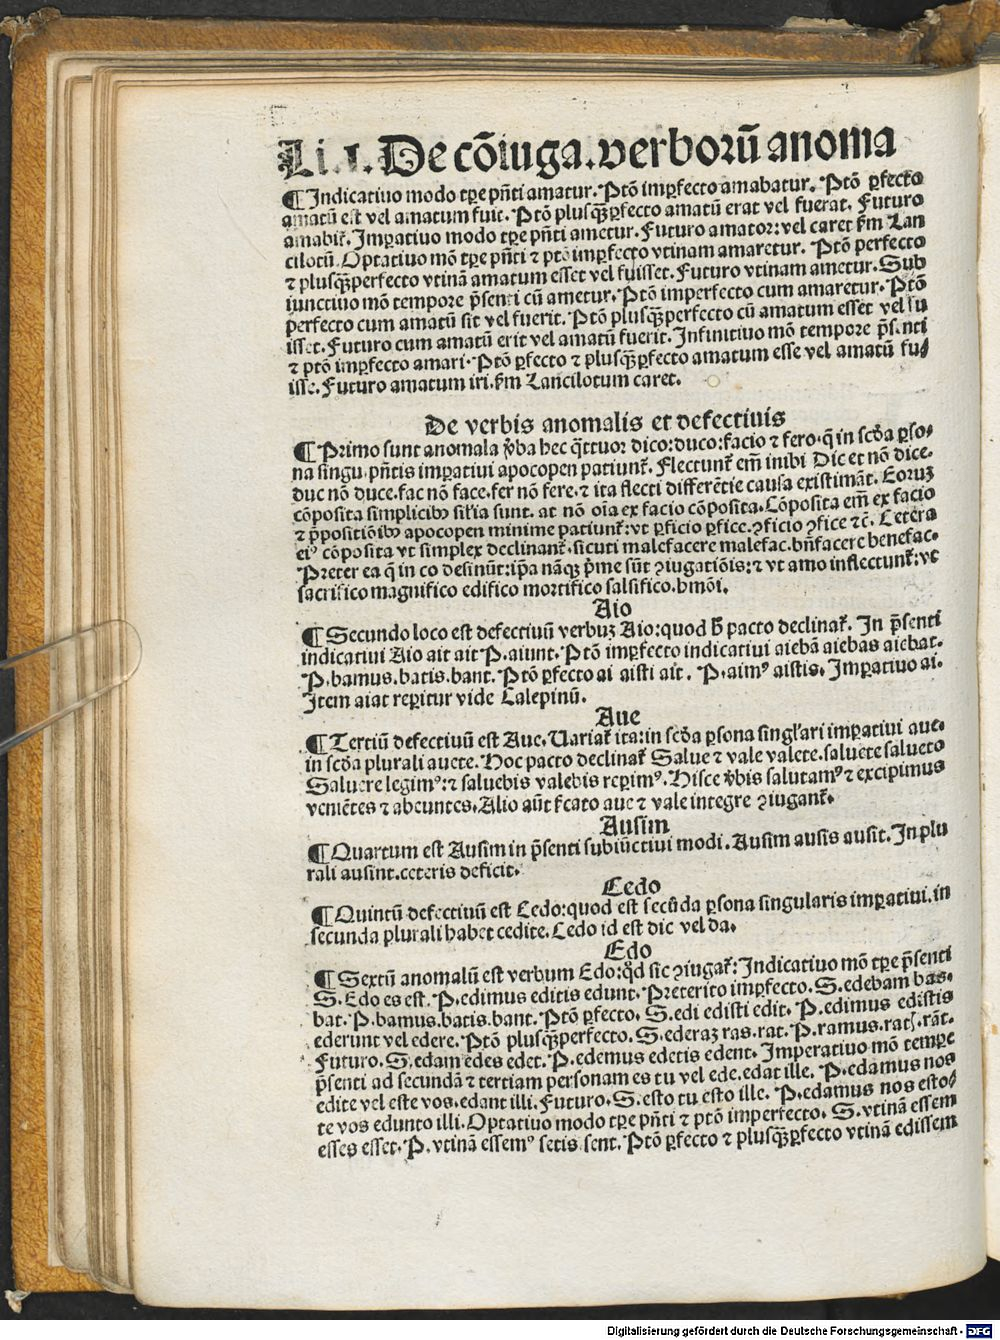 Li. I. De cōiuga. verborū anoma
¶ Indicatiuo modo tp̄e pn̄ti amatur. Ptō imꝑfecto amabatur. Ptō ꝑfecto
amatū est vel amatum fuit. Ptō plusq̄ꝑfecto amatū erat vel fuerat. Futuro
amabit̄. Imꝑatiuo modo tp̄e pn̄ti ametur. Futuro amator: vel caret ẜm Lan
cilotū. Optatiuo mō tp̄e pn̄ti ⁊ ptō imꝑfecto vtinam amaretur. Ptō perfecto
⁊ plusq̄ꝑerfecto vtinā amatum esset vel fuisset. Futuro vtinam ametur. Sub
iunctiuo mō tempore p̄senti cū ametur. Ptō imperfecto cum amaretur. Ptō
perfecto cum amatū sit vel fuerit. Ptō plusq̄ꝑerfecto cū amatum esset vel fu
isset. Futuro cum amatū erit vel amatū fuerit. Infinitiuo mō tempore p̄senti
⁊ ptō imꝑfecto amari. Ptō ꝑfecto ⁊ plusq̄ꝑfecto amatum esse vel amatū fu/
isse. Futuro amatum iri. ẜm Lancilotum caret.
De verbis anomalis et defectiuis
¶ Primo sunt anomala v̾ba hec q̄ttuor dico: duco: facio ⁊ fero. q̄ in scd̄a ꝑso-
na singu. pn̄tis imꝑatiui apocopen patiunt̄. Flectunt̄ em̄ inibi Dic et nō dice.
duc nō duce. fac nō face. fer nō fere. ⁊ ita flecti differētie causa existimāt. Eorūꝫ
cōposita simplicibꝰ sil'ia sunt. at nō oīa ex facio cōposita. Cōposita em̄ ex facio
⁊ p̄positiōibꝰ apocopen minime patiunt̄: vt ꝑficio ꝑfice. ꝯficio ꝯfice ⁊c̄. Cetera
eiꝰ cōposita vt simplex declinant̄. sicuti malefacere malefac. bn̄facere benefac.
Preter ea q̄ in co desinūt: ip̄a nāqꝫ p̄me sūt ꝯiugatiōis: ⁊ vt amo inflectunt̄: vt
sacrifico magnifico edifico mortifico salsifico. hmōi.
Aio
¶ Secundo loco est defectiuū verbuꝫ Aio: quod h̄ pacto declinat̄. In p̄senti
indicatiui Aio ais ait P. aiunt. Ptō imꝑfecto indicatiui aiebā aiebas aiebat.
P. bamus. batis. bant. Ptō ꝑfecto ai aisti ait. P. aimꝰ aistis. Imꝑatiuo ai.
Item aiat reꝑitur vide Calepinū.
Aue
¶ Tertiū defectiuū est Aue. Uariat̄ ita: in scd̄a ꝑsona singl'ari imꝑatiui aue.
in scd̄a plurali auete. Hoc pacto declinat̄ Salue ⁊ vale valete. saluete salueto
Saluere legimꝰ: ⁊ saluebis valebis reꝑimꝰ. Hisce v̾bis salutamꝰ ⁊ excipimus
veniētes ⁊ abeuntes. Alio aūt ẜcato aue ⁊ vale integre ꝯiugant̄.
Ausim
¶ Quartum est Ausim in p̄senti subiūctiui modi. Ausim ausis ausit. In plu
rali ausint. ceteris deficit.
Cedo
¶ Quintū defectiuū est Cedo: quod est secūda ꝑsona singularis imꝑatiui. in
secunda plurali habet cedite. Cedo id est dic vel da.
Edo
¶ Sextū anomalū est verbum Edo: qd̄ sic ꝯiugat̄: Indicatiuo mō tp̄e p̄senti
S. Edo es est. P. edimus editis edunt. Preterito imꝑfecto. S. edebam bas.
bat. P. bamus. batis. bant. Ptō ꝑfecto. S. edi edisti edit. P. edimus edistis
ederunt vel edere. Ptō plusq̄ꝑerfecto. S. ederaꝫ ras. rat. P. ramus. ratꝭ. rāt.
Futuro. S. edam edes edet. P. edemus edetis edent. Imperatiuo mō tempe
p̄senti ad secundā ⁊ tertiam personam es tu vel ede. edat ille. P. edamus nos
edite vel este vos. edant illi. Futuro. S. esto tu esto ille. P. edamus nos esto/
te vos edunto illi. Optatiuo modo tp̄e pn̄ti ⁊ ptō imperfecto. S. vtinā essem
esses esset. P. vtinā essemꝰ setis sent. Ptō ꝑfecto ⁊ plusq̄ꝑfecto vtinā edissem
Digitalisierung gefördert durch die Deutsche Forschungsgemeinschaft - DFG